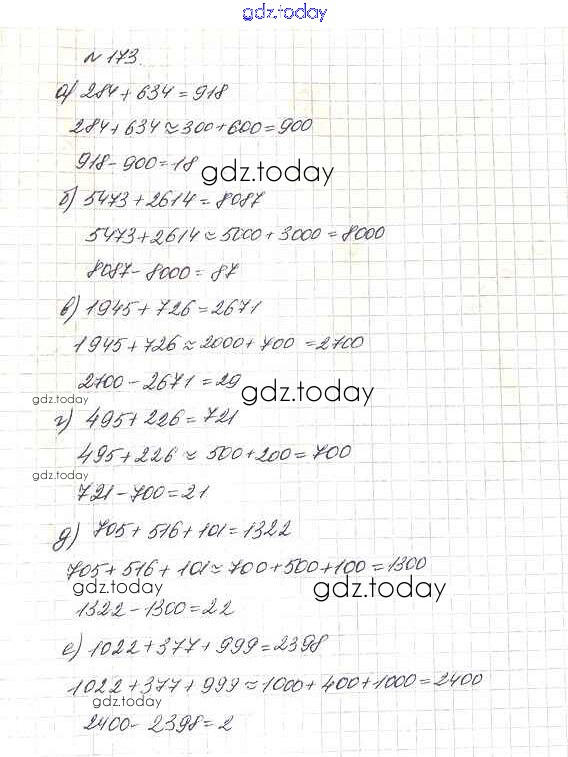 gdz.today
№ 173.
а) 284 + 634 = 918
284 + 634 ≈ 300 + 600 = 900
918 - 900 = 18
gdz.today
б) 5473 + 2614 = 8087
5473 + 2614 ≈ 5000 + 3000 = 8000
8087 - 8000 = 87
в) 1945 + 726 = 2671
1945 + 726 ≈ 2000 + 700 = 2700
2700 - 2671 = 29
gdz.today
gdz.today
г) 495 + 226 = 721
495 + 226 ≈ 500 + 200 = 700
gdz.today
721 - 700 = 21
д) 705 + 516 + 101 = 1322
705 + 516 + 101 ≈ 700 + 500 + 100 = 1300
gdz.today
gdz.today
1322 - 1300 = 22
е) 1022 + 377 + 999 = 2398
1022 + 377 + 999 ≈ 1000 + 400 + 1000 = 2400
gdz.today
2400 - 2398 = 2
gdz.today